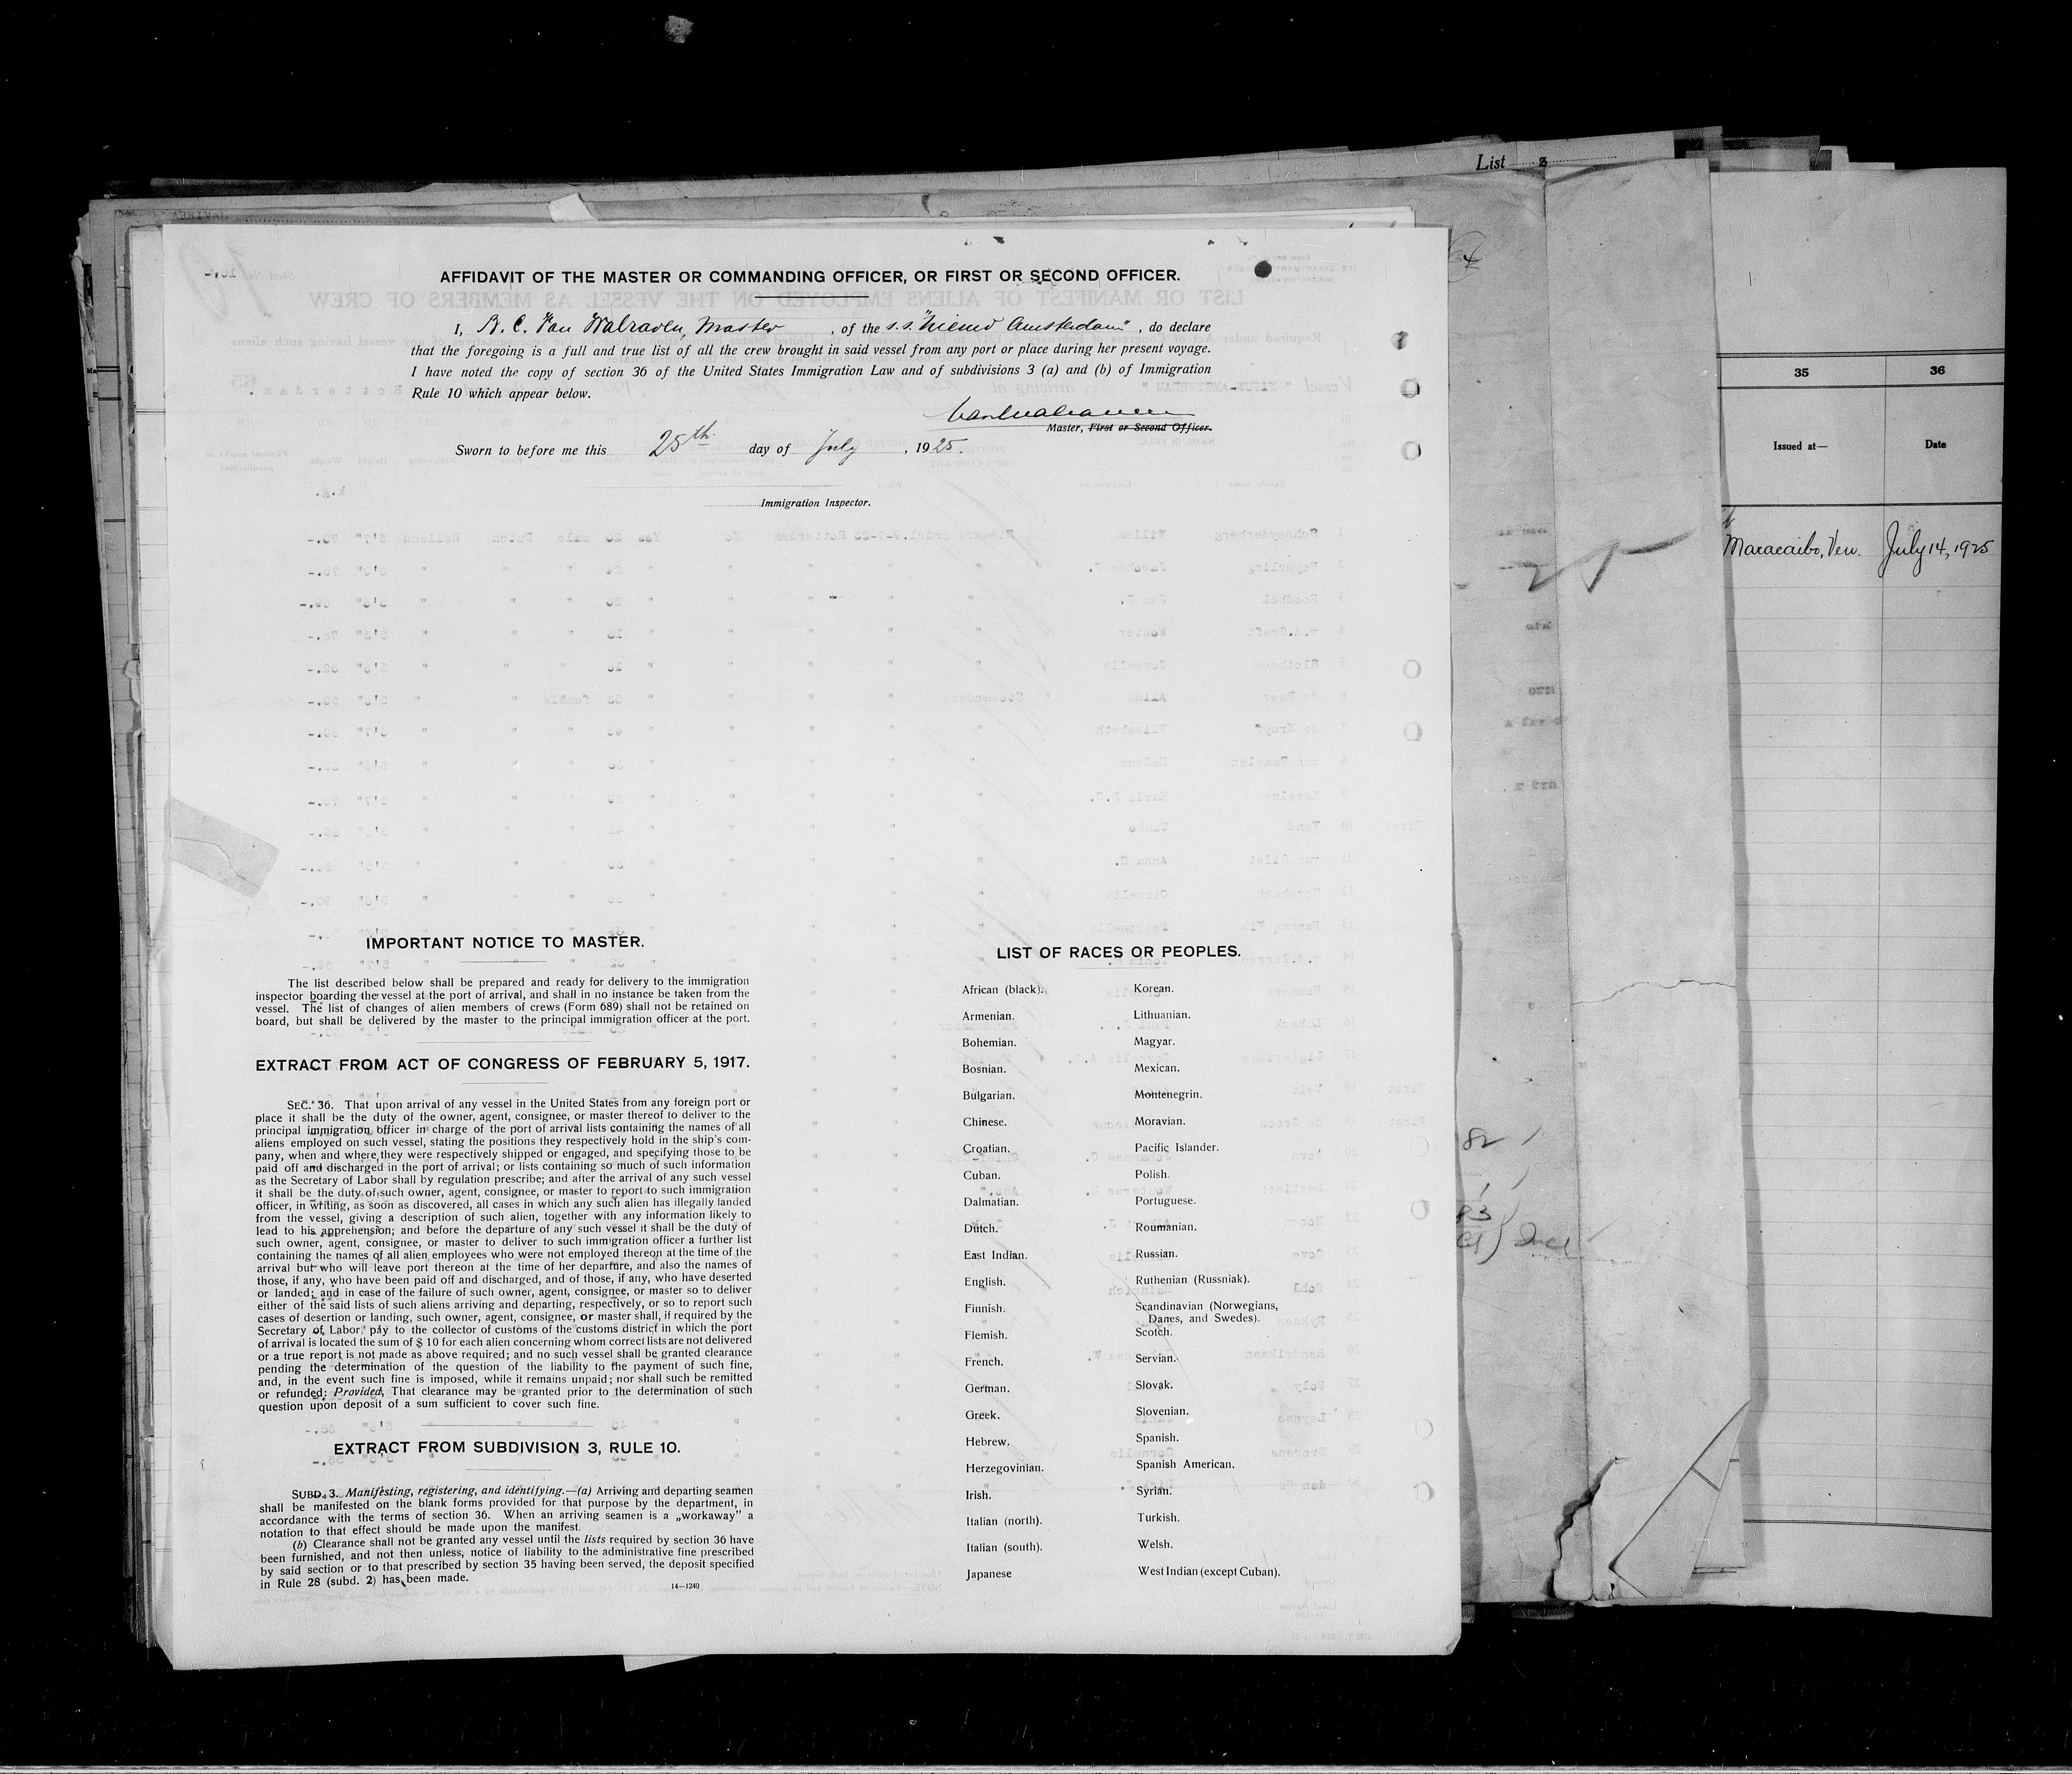 List 3
AFFIDAVIT OF THE MASTER OR COMMANDING OFFICER, OR FIRST OR SECOND OFFICER.
I, Van Walraven, Master, of the s.s. "Nieuw Amsterdam", do declare
that the foregoing is a full and true list of all the crew brought in said vessel from any port or place during her present voyage.
I have noted the copy of section 36 of the United States Immigration Law and of subdivisions 3 (a) and (b) of Immigration
Rule 10 which appear below.
Master, First or Second Officer.
Sworn to before me this 25th day of July, 1925.
Immigration Inspector.
IMPORTANT NOTICE TO MASTER.
The list described below shall be prepared and ready for delivery to the immigration
inspector boarding the vessel at the port of arrival, and shall in no instance be taken from the
vessel. The list of changes of alien members of crews (Form 689) shall not be retained on
board, but shall be delivered by the master to the principal immigration officer at the port.
EXTRACT FROM ACT OF CONGRESS OF FEBRUARY 5, 1917.
SEC. 36. That upon arrival of any vessel in the United States from any foreign port or
place it shall be the duty of the owner, agent, consignee, or master thereof to deliver to the
principal immigration officer in charge of the port of arrival lists containing the names of all
aliens employed on such vessel, stating the positions they respectively hold in the ship's com-
pany, when and where they were respectively shipped or engaged, and specifying those to be
paid off and discharged in the port of arrival; or lists containing so much of such information
as the Secretary of Labor shall by regulation prescribe; and after the arrival of any such vessel
it shall be the duty of such owner, agent, consignee, or master to report to such immigration
officer, in writing, as soon as discovered, all cases in which any such alien has illegally landed
from the vessel, giving a description of such alien, together with any information likely to
lead to his apprehension; and before the departure of any such vessel it shall be the duty of
such owner, agent, consignee, or master to deliver to such immigration officer a further list
containing the names of all alien employees who were not employed thereon at the time of the
arrival but who will leave port thereon at the time of her departure, and also the names of
those, if any, who have been paid off and discharged, and of those, if any, who have deserted
or landed; and in case of the failure of such owner, agent, consignee, or master so to deliver
either of the said lists of such aliens arriving and departing, respectively, or so to report such
cases of desertion or landing, such owner, agent, consignee, or master shall, if required by the
Secretary of Labor, pay to the collector of customs of the customs district in which the port
of arrival is located the sum of $ 10 for each alien concerning whom correct lists are not delivered
or a true report is not made as above required; and no such vessel shall be granted clearance
pending the determination of the question of the liability to the payment of such fine,
and, in the event such fine is imposed, while it remains unpaid; nor shall such be remitted
or refunded: Provided, That clearance may be granted prior to the determination of such
question upon deposit of a sum sufficient to cover such fine.
EXTRACT FROM SUBDIVISION 3, RULE 10.
SUBD. 3. Manifesting, registering, and identifying.—(a) Arriving and departing seamen
shall be manifested on the blank forms provided for that purpose by the department, in
accordance with the terms of section 36. When an arriving seamen is a „workaway" a
notation to that effect should be made upon the manifest.
(b) Clearance shall not be granted any vessel until the lists required by section 36 have
been furnished, and not then unless, notice of liability to the administrative fine prescribed
by said section or to that prescribed by section 35 having been served, the deposit specified
in Rule 28 (subd. 2) has been made.
14—1240
LIST OF RACES OR PEOPLES.
African (black).
Armenian.
Bohemian.
Bosnian.
Bulgarian.
Chinese.
Croatian.
Cuban.
Dalmatian.
Dutch.
East Indian.
English.
Finnish.
Flemish.
French.
German.
Greek.
Hebrew.
Herzegovinian.
Irish.
Italian (north).
Italian (south).
Japanese
Korean.
Lithuanian.
Magyar.
Mexican.
Montenegrin.
Moravian.
Pacific Islander.
Polish.
Portuguese.
Roumanian.
Russian.
Ruthenian (Russniak).
Scandinavian (Norwegians,
Danes, and Swedes).
Scotch.
Servian.
Slovak.
Slovenian.
Spanish.
Spanish American.
Syrian.
Turkish.
Welsh.
West Indian (except Cuban).
82
83
35
36
Issued at—
Date
Maracaibo, Ven.
July 14, 1925